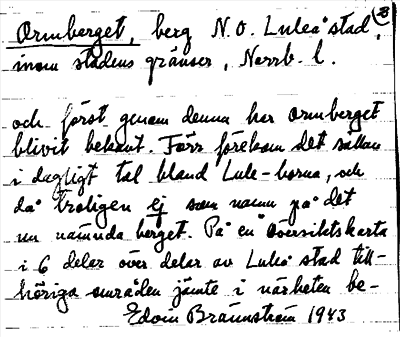 Ormberget, berg N.O. Luleå stad, B
inom stadens gränser, Norrb. l.
och först genom denna har Ormberget
blivit bekant. Förr förekom det sällan
i dagligt tal bland Lule-borna, och
då troligen ej som namn på det
nu nämnda berget. På en översiktskarta
i 6 delar över delar av Luleå stad till-
höriga områden jämte i närheten be-
Edvin Brännström 1943